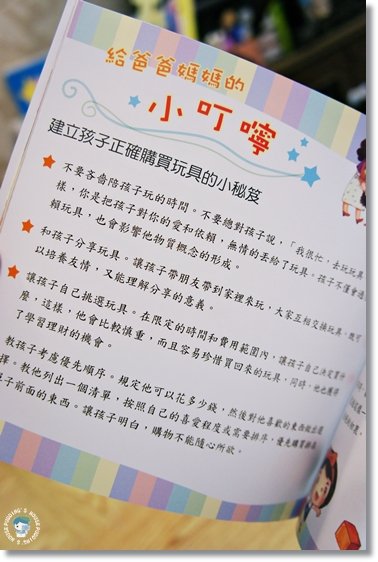 給爸爸媽媽的
小叮嚀
建立孩子正確購買玩具的小秘笈
不要吝嗇陪孩子玩的時間。不要總對孩子說，「我很忙，去玩玩具
樣，你是把孩子對你的愛和依賴，無情的丟給了玩具。孩子不僅會過
賴玩具，也會影響他物質概念的形成。
和孩子分享玩具。讓孩子帶朋友帶到家裡來玩，大家互相交換玩具，既可
以培養友情，又能理解分享的意義。
讓孩子自己挑選玩具。在限定的時間和費用範圍內，讓孩子自己決定買什
麼，這樣，他會比較慎重，而且容易珍惜買回來的玩具，同時，他也獲得
了學習理財的機會。
教孩子考慮優先順序。規定他可以花多少錢，然後對他喜歡的東西做出選
擇。教他列出一個清單，按照自己的喜愛程度或需要排序，優先購買排在
單子前面的東西。讓孩子明白，購物不能隨心所欲。
PUDDING'S HOUSE